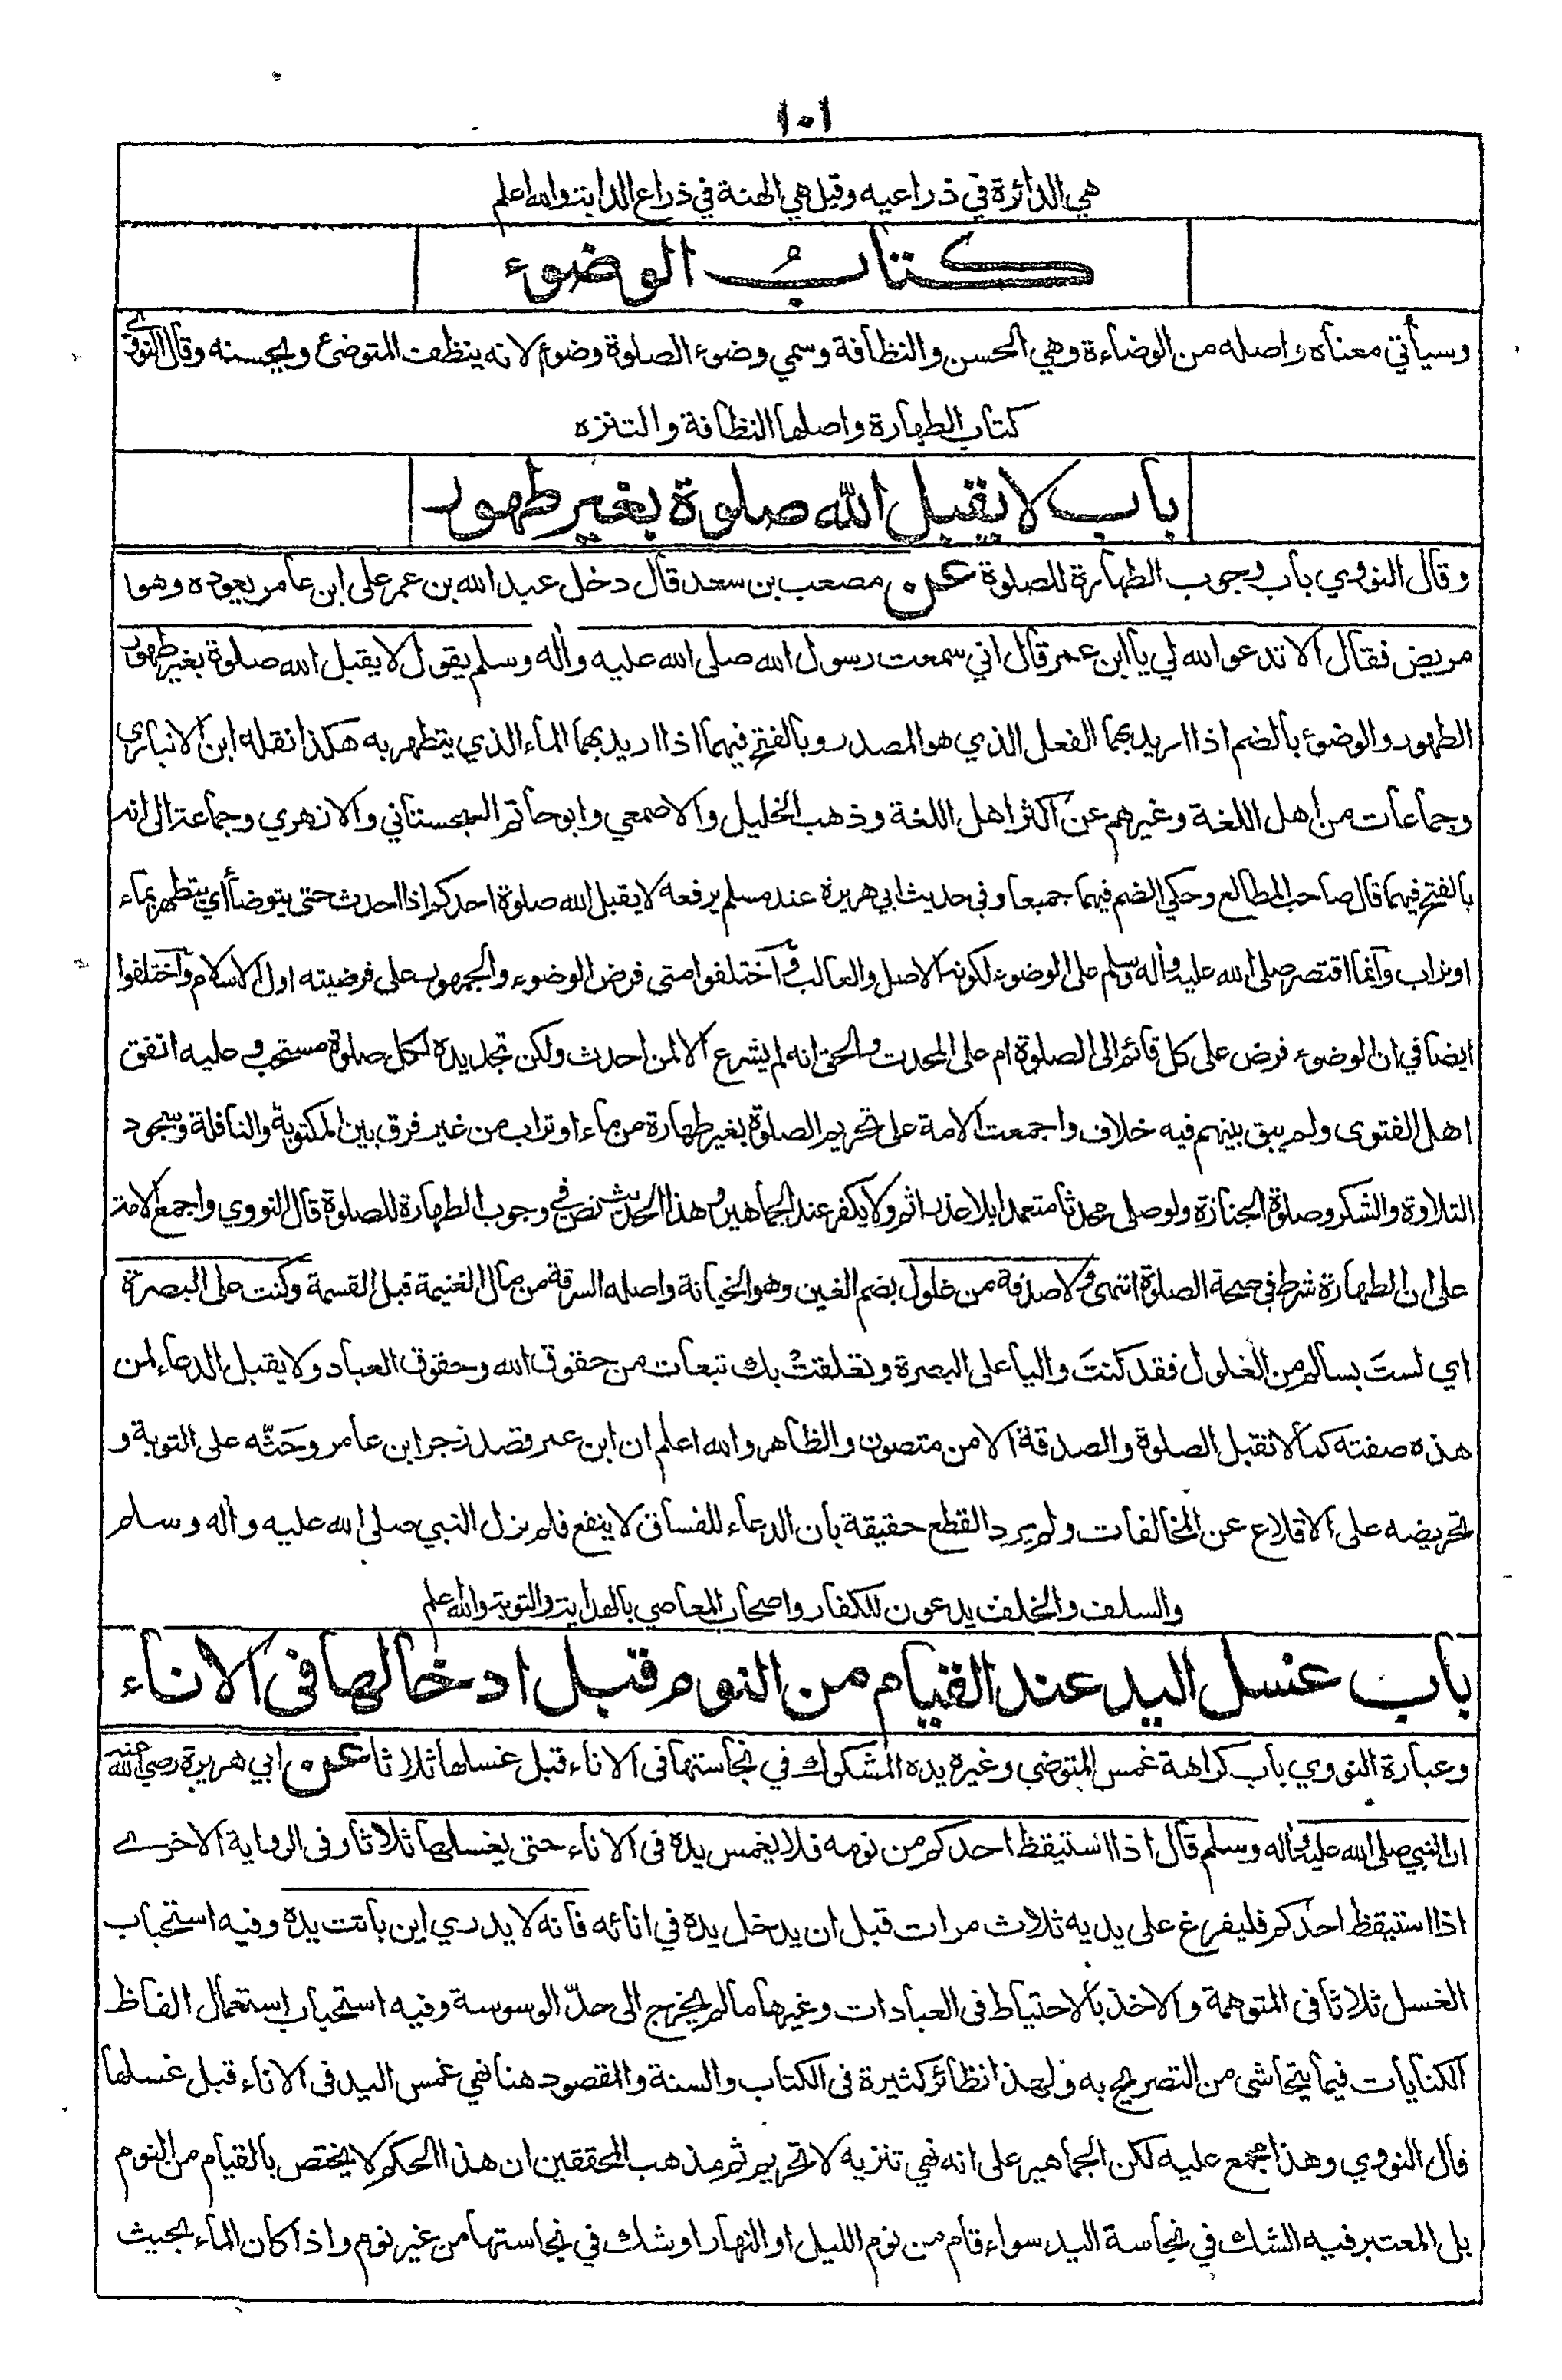 ١٠١
هي الدائرة في ذراعيه وقيل هي الهنة في ذراع الدابة والله اعلم
كتابُ الوضوء
وسيأتي معناه واصله من الوضاءة وهي الحسن والنظافة وسمي وضوء الصلوة وضوء لانه ينظف المتوضئ ويحسنه وقال النووي
كتاب الطهارة واصلها النظافة والتنزه
باب لا يقبل الله صلوة بغير طهور
وقال النووي باب وجوب الطهارة للصلوة عن مصعب بن سعد قال دخل عبد الله بن عمر على ابن عامر يعوده وهوا
مريض فقال الا تدعو الله لي يا ابن عمر قال اني سمعت رسول الله صلى الله عليه واله وسلم يقول لا يقبل الله صلوة بغير طهور
الطهور والوضوء بالضم اذا اريد بهما الفعل الذي هو المصدر وبالفتح فيهما اذا اريد بهما الماء الذي يتطهر به هكذا نقله ابن الانباري
وجماعات من اهل اللغة وغيرهم عن اكثر اهل اللغة وذهب الخليل والاصمعي وابو حاتم السجستاني والازهري وجماعة الى انه
بالفتح فيهما قال صاحب المطالع وحكي الضم فيهما جميعا وفي حديث ابي هريرة عند مسلم يرفعه لا يقبل الله صلوة احدكم اذا احدث حتى يتوضأ اي يتطهر بماء
او تراب وانما اقتصر صلى الله عليه واله وسلم على الوضوء لكونه الاصل والغالب واختلفوا متى فرض الوضوء والجمهور على فرضيته اول الاسلام واختلفوا
ايضا في ان الوضوء فرض على كل قائم الى الصلوة ام على المحدث والحق انه لم يشرع الا لمن احدث ولكن تجديده لكل صلوة مستحب وعليه اتفق
اهل الفتوى ولم يبق بينهم فيه خلاف واجمعت الامة على تحريم الصلوة بغير طهارة من ماء او تراب من غير فرق بين المكتوبة والنافلة وسجود
التلاوة والشكر وصلوة الجنازة ولو صلى محدثا متعمدا بلا عذر اثم ولا يكفر عند الجماهير وهذا الحديث نص في وجوب الطهارة للصلوة قال النووي واجمع الامة
على ان الطهارة شرط في صحة الصلوة انتهى ولا صدقة من غلول بضم الغين وهو الخيانة واصله السرقة من مال الغنيمة قبل القسمة وكنت على البصرة
اي لستَ بسالم من الغلول فقد كنتَ واليا على البصرة وتعلقتْ بك تبعات من حقوق الله وحقوق العباد ولا يقبل الدعاء لمن
هذه صفته كما لا تقبل الصلوة والصدقة الا من متصون والظاهر والله اعلم ان ابن عمر قصد زجر ابن عامر وحَثّه على التوبة و
تحريضه على الاقلاع عن المخالفات ولم يرد القطع حقيقة بان الدعاء للفساق لا ينفع فلم يزل النبي صلى الله عليه واله وسلم
والسلف والخلف يدعون للكفار واصحاب المعاصي بالهداية والتوبة والله اعلم
باب غسل اليد عند القيام من النوم قبل ادخالها في الاناء
وعبارة النووي باب كراهة غمس المتوضي وغيره يده المشكوك في نجاستها في الاناء قبل غسلها ثلاثا عن ابي هريرة رضي الله عنه
ان النبي صلى الله عليه واله وسلم قال اذا استيقظ احدكم من نومه فلا يغمس يده في الاناء حتى يغسلها ثلاثا وفي الرواية الاخرے
اذا استيقظ احدكم فليفرغ على يديه ثلاث مرات قبل ان يدخل يده في انائه فانه لا يدري اين باتت يده وفيه استحباب
الغسل ثلاثا في المتوهمة والاخذ بالاحتياط في العبادات وغيرها ما لم يخرج الى حدّ الوسوسة وفيه استحباب استعمال الفاظ
الكنايات فيما يتحاشى من التصريح به ولهذا نظائر كثيرة في الكتاب والسنة والمقصود هنا نهي غمس اليد في الاناء قبل غسلها
قال النووي وهذا مجمع عليه لكن الجماهير على انه نهي تنزيه لا تحريم ثم مذهب المحققين ان هذا الحكم لا يختص بالقيام من النوم
بل المعتبر فيه الشك في نجاسة اليد سواء قام من نوم الليل او النهار او شك في نجاستها من غير نوم واذا كان الماء بحيث